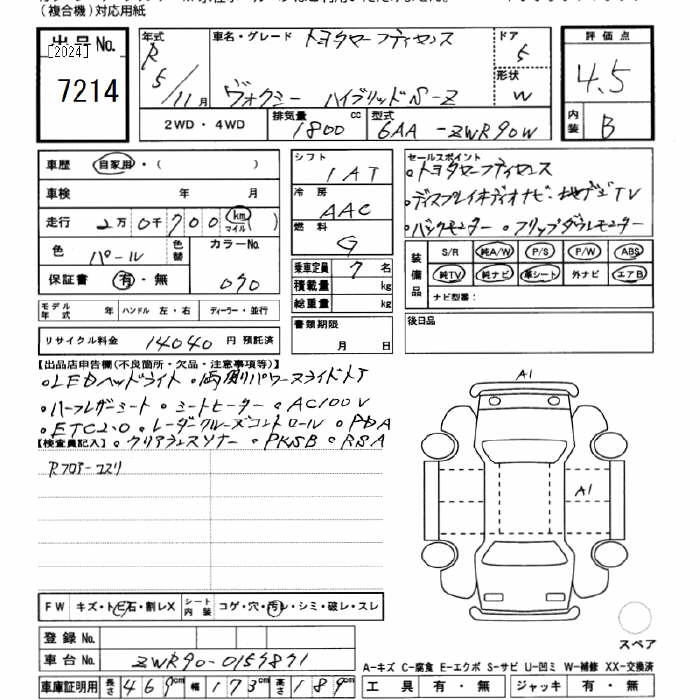 (複合機)対応用紙
出品No.
[2024]
7214
年式 R5/11月
車名・グレード トヨタセーフティセンス
ヴォクシー ハイブリッドS-Z
ドア 5
形状 W
評価点
4.5
内装 B
2WD・4WD
排気量 1800 cc
型式 6AA-ZWR90W
車歴 自家用・( )
車検 年 月
走行 2万0千700 km マイル ( )
色 パール 色替 カラーNo. 070
保証書 有・無
シフト 1AT
冷房 AAC
燃料 G
乗車定員 7名
積載量 kg
総重量 kg
書類期限
月 日
セールスポイント
・トヨタセーフティセンス
・ディスプレイオーディオナビ・地デジTV
・バックモニター ・フリップダウンモニター
装備品
S/R 純A/W P/S P/W ABS
純TV 純ナビ 革シート 外ナビ エアB
ナビ型番:
後日品
モデル年式 年 ハンドル 左・右 ディーラー・並行
リサイクル料金 14040円 預託済
【出品店申告欄(不良箇所・欠品・注意事項等)】
・LEDヘッドライト ・両側パワースライドドア
・ハーフレザーシート ・シートヒーター ・AC100V
・ETC2.0 ・レーダークルーズコントロール ・PDA
【検査員記入】 ・クリアランスソナー ・PKSB ・RSA
Rフロアーコスリ
A1
A1
FW キズ・トビ石・割レX シート内装 コゲ・穴・汚レ・シミ・破レ・スレ
スペア
登録No.
車台No. ZWR90-0154871
車庫証明用 長さ469cm 幅173cm 高さ189cm
A-キズ C-腐食 E-エクボ S-サビ U-凹ミ W-補修 XX-交換済
工具 有・無 ジャッキ 有・無